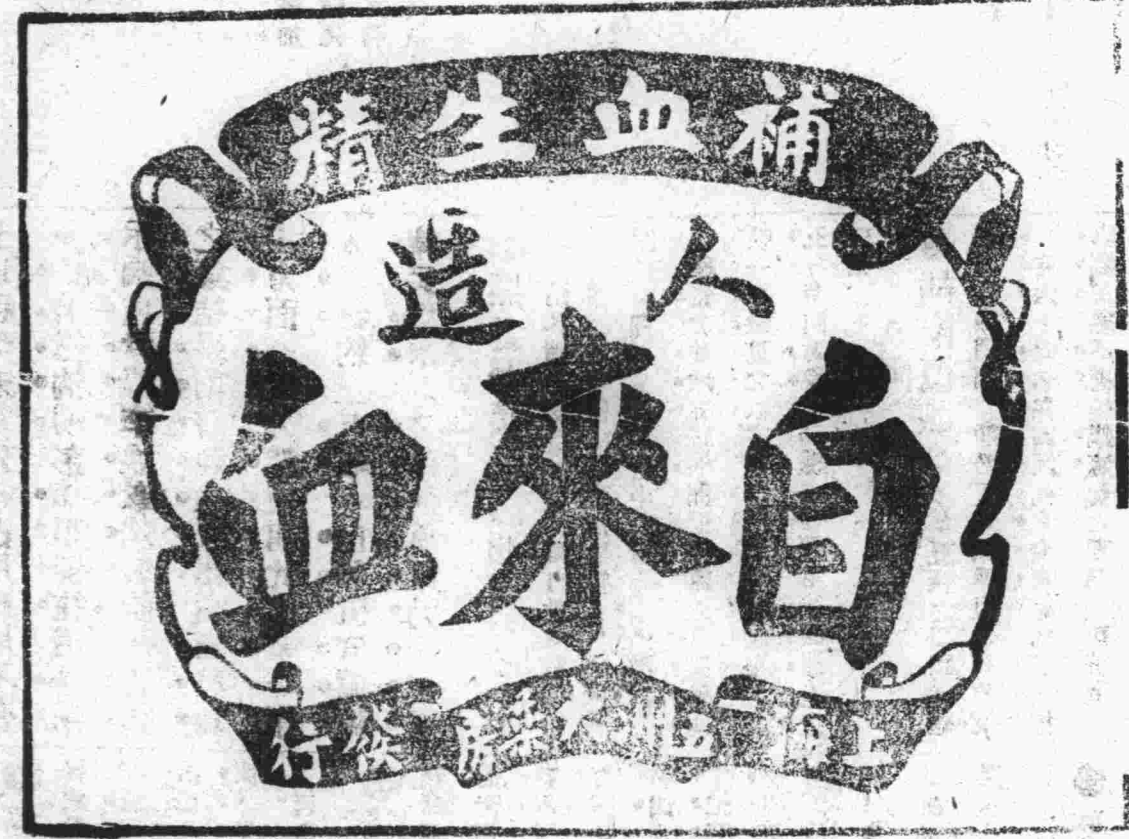 補血生精
人造
自來血
上海五洲大藥房發行